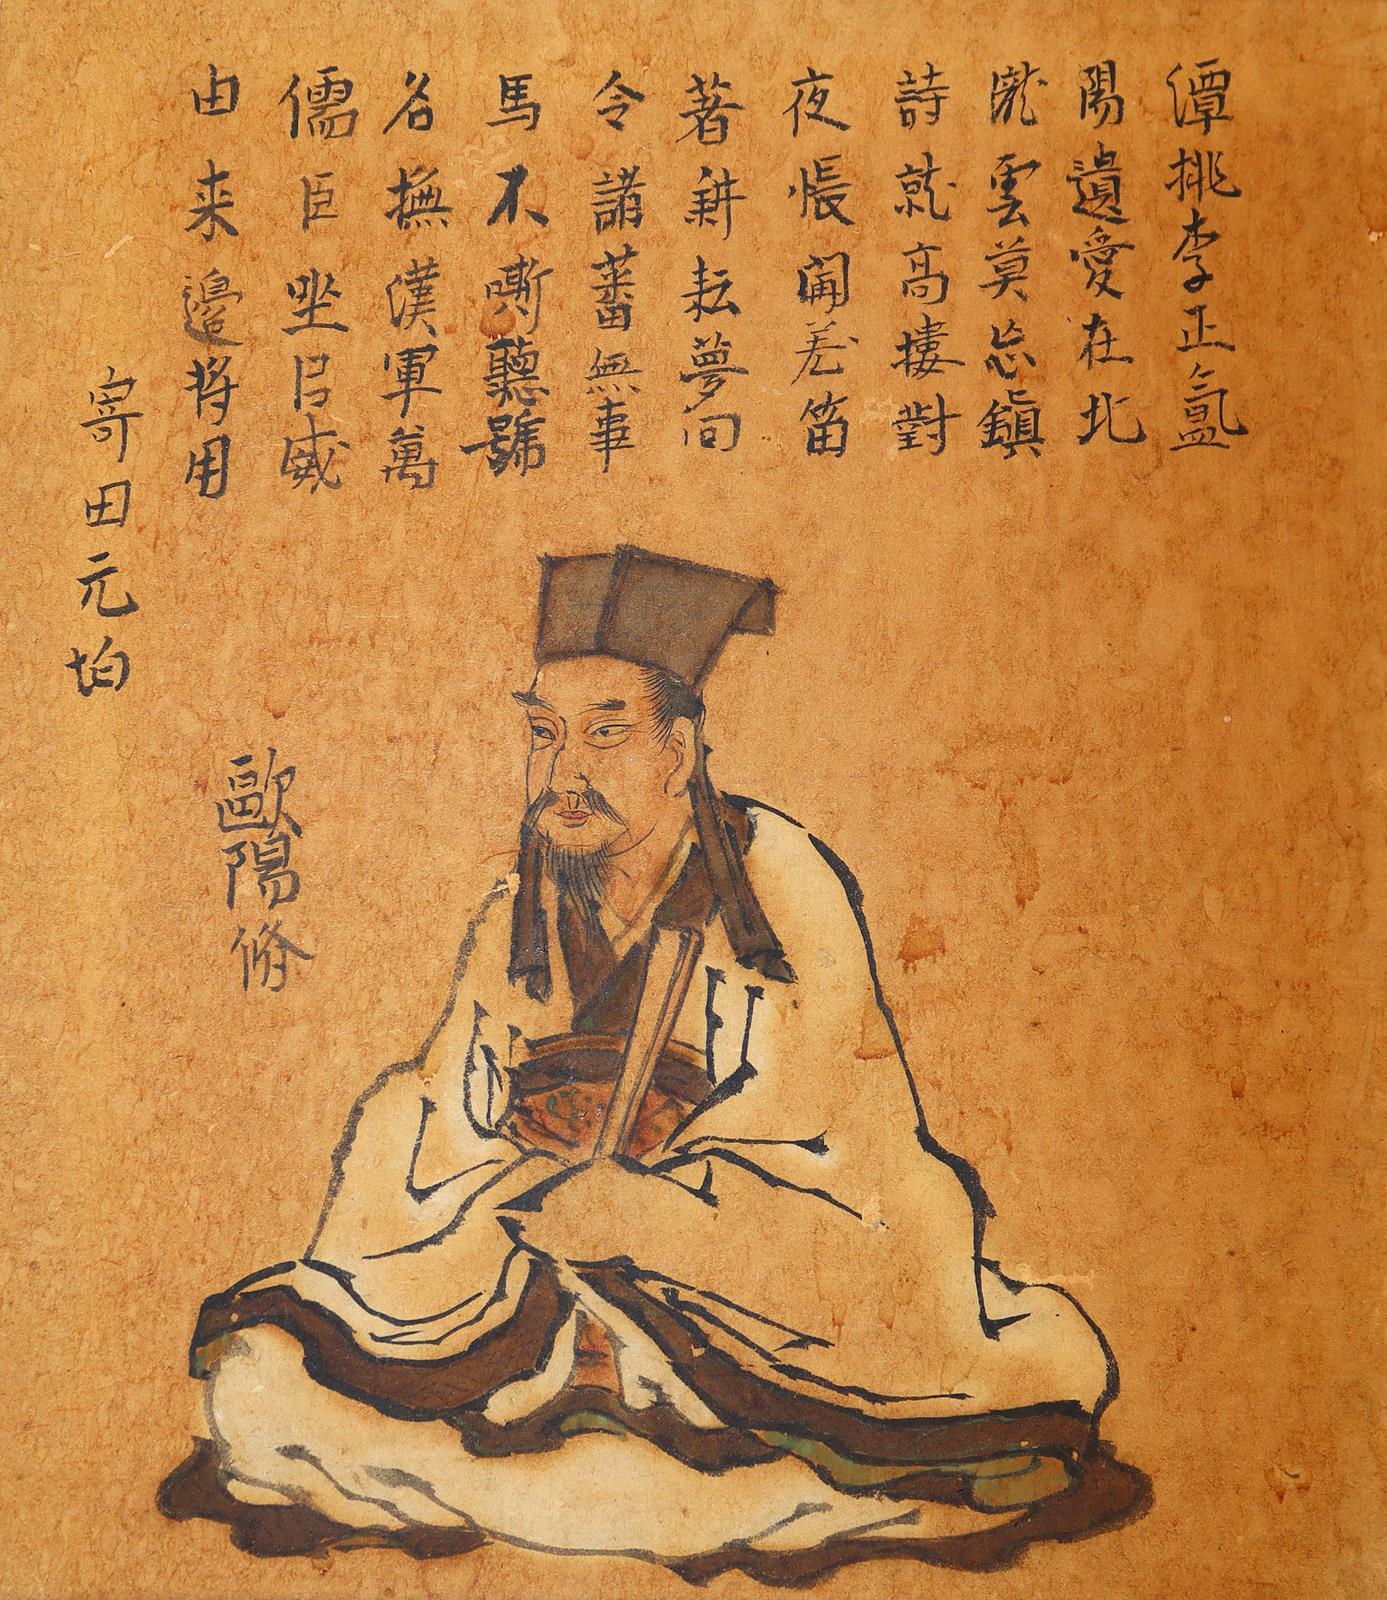 由来邊将用
儒臣坐㠯威
名撫漢軍萬
馬不嘶聽號
令諸蕃無事
著耕耘夢回
夜帳聞羌笛
詩就高樓對
隴雲莫忘鎮
陽遺愛在北
潭桃李正氳
寄田元均
歐陽修